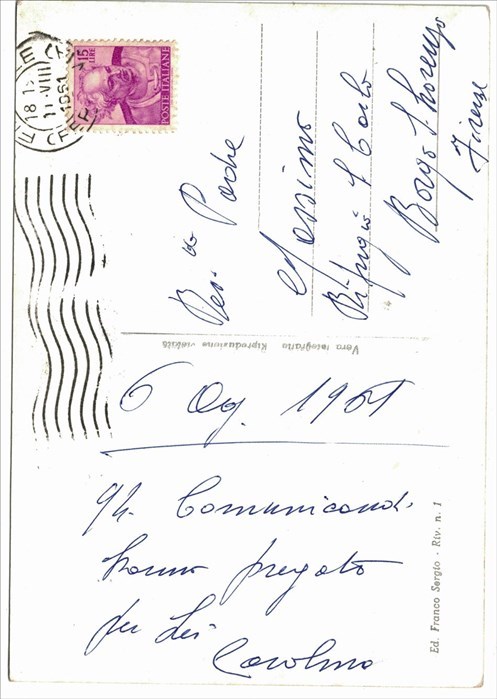 6 Ag. 1961
Gli Comunicandi
hanno pregato
per Lei
Carolina
Ed. Franco Sergio - Riv. n. 1
Vera fotografia Riproduzione vietata
Rev. do Padre
Massimo
Rifugio S Carlo
Borgo S. Lorenzo
Firenze
POSTE ITALIANE
LIRE 15
18
11-VIII
1961